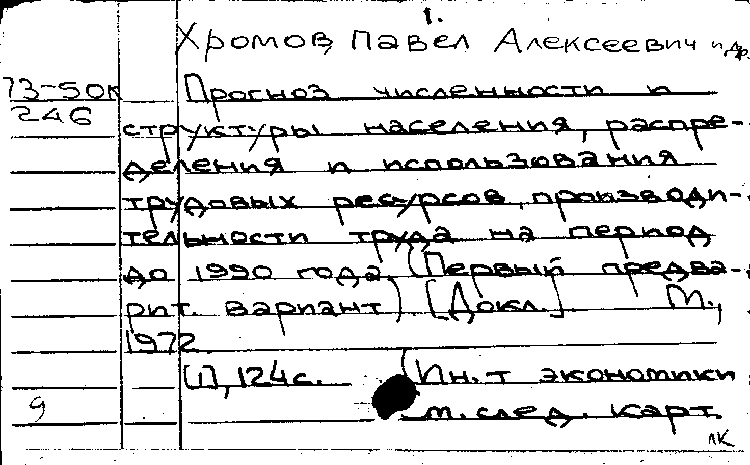 1.
Хромов, Павел Алексеевич и др.
73-50к Прогноз численности и
246 структуры населения, распре-
деления и использования
трудовых ресурсов, производи-
тельности труда на период
до 1990 года. (Первый предва-
рит. вариант) [Докл.] М.,
1972.
[1], 124с. (Ин-т экономики
9 т. след. карт.
лк